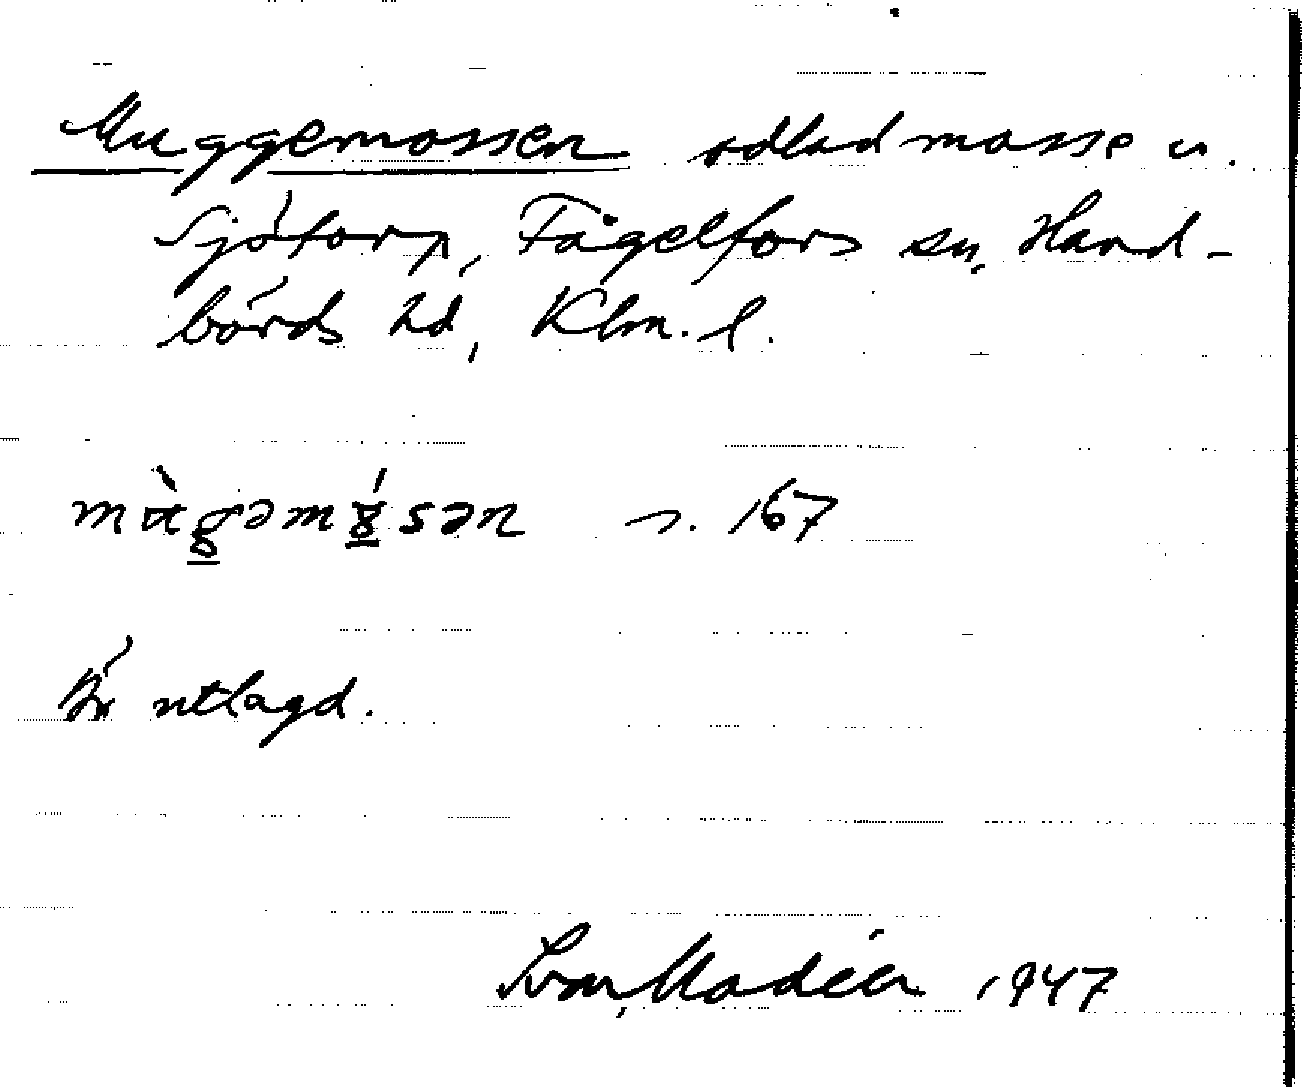 Muggemossen odlad mosse u.
Sjötorp, Fågelfors sn, Hand-
börds hd, Klm. l.
s. 167
Är utlagd.
1947